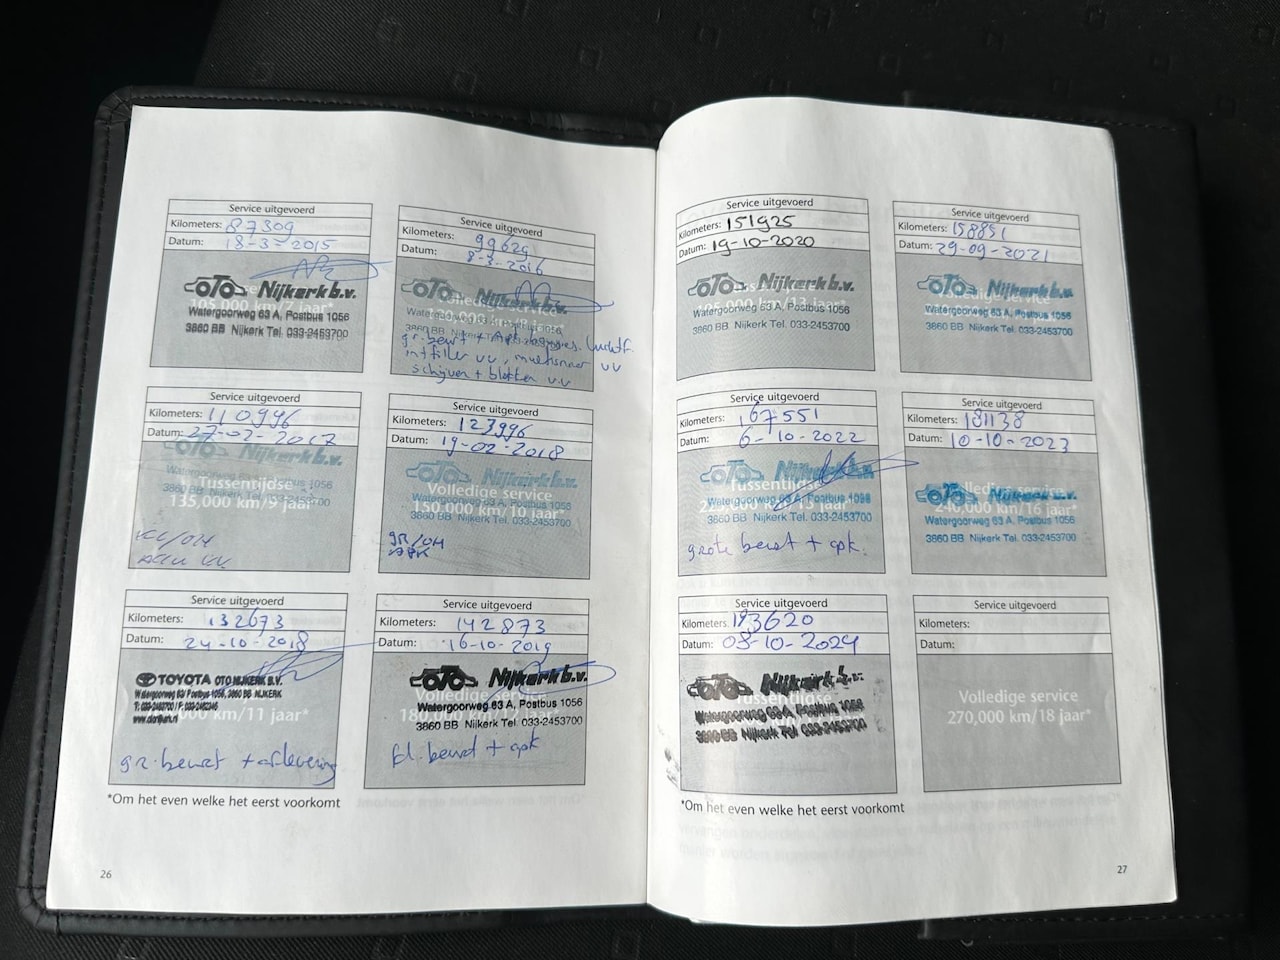 Service uitgevoerd
Kilometers: 87309
Datum: 18-3-2015
OTO Nijkerk b.v.
105,000 km/7 jaar*
Watergoorweg 63 A, Postbus 1056
3860 BB Nijkerk Tel. 033-2453700
Service uitgevoerd
Kilometers: 99629
Datum: 8-3-2016
OTO Nijkerk b.v.
Watergoorweg 63 A, Postbus 1056
3860 BB Nijkerk
gr. beurt + APK luchtf.
intfilter vv, multisnaar vv
schijven + blokken v.v
Service uitgevoerd
Kilometers: 110996
Datum: 27-02-2017
OTO Nijkerk b.v.
Watergoorweg 63 A, Postbus 1056
Tussentijdse
3860 BB Nijkerk Tel. 033-2453700
135,000 km/9 jaar*
KL/OH
Service uitgevoerd
Kilometers: 123996
Datum: 19-02-2018
OTO Nijkerk b.v.
Volledige service
Watergoorweg 63 A, Postbus 1056
150,000 km/10 jaar*
3860 BB Nijkerk Tel. 033-2453700
GR/OH
APK
Service uitgevoerd
Kilometers: 132673
Datum: 24-10-2018
TOYOTA OTO NIJKERK B.V.
Watergoorweg 63/ Postbus 1056, 3860 BB NIJKERK
km/11 jaar*
gr. beurt + aflevering
Service uitgevoerd
Kilometers: 142873
Datum: 16-10-2019
OTO Nijkerk b.v.
Volledige service
Watergoorweg 63 A, Postbus 1056
180,000 km/12 jaar*
3860 BB Nijkerk Tel. 033-2453700
kl. beurt + apk
*Om het even welke het eerst voorkomt
26
Service uitgevoerd
Kilometers: 151925
Datum: 19-10-2020
OTO Nijkerk b.v.
km/13 jaar*
Watergoorweg 63 A, Postbus 1056
3860 BB Nijkerk Tel. 033-2453700
Service uitgevoerd
Kilometers: 158851
Datum: 29-09-2021
OTO Nijkerk b.v.
Volledige service
Watergoorweg 63 A, Postbus 1056
3860 BB Nijkerk Tel. 033-2453700
Service uitgevoerd
Kilometers: 167551
Datum: 6-10-2022
OTO Nijkerk b.v.
Tussentijdse
Watergoorweg 63 A, Postbus 1056
3860 BB Nijkerk Tel. 033-2453700
grote beurt + apk.
Service uitgevoerd
Kilometers: 181138
Datum: 10-10-2023
OTO Nijkerk b.v.
Volledige service
240,000 km/16 jaar*
Watergoorweg 63 A, Postbus 1056
3860 BB Nijkerk Tel. 033-2453700
Service uitgevoerd
Kilometers: 193620
Datum: 08-10-2024
OTO Nijkerk b.v.
Tussentijdse
Watergoorweg 63 A, Postbus 1056
3860 BB Nijkerk Tel. 033-2453700
Service uitgevoerd
Kilometers:
Datum:
Volledige service
270,000 km/18 jaar*
*Om het even welke het eerst voorkomt
27